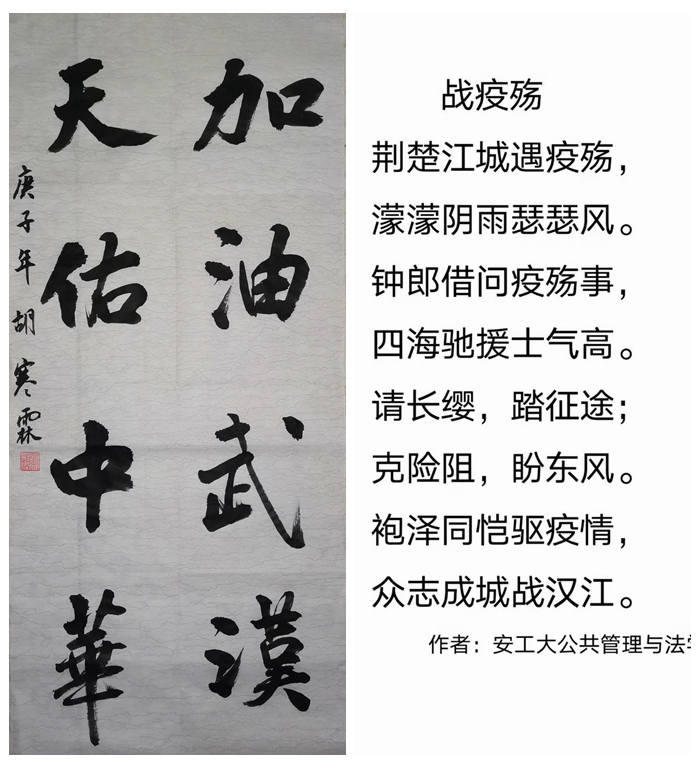 加油武漢
天佑中華
庚子年 胡寒霖
战疫殇
荆楚江城遇疫殇，
濛濛阴雨瑟瑟风。
钟郎借问疫殇事，
四海驰援士气高。
请长缨，踏征途；
克险阻，盼东风。
袍泽同恺驱疫情，
众志成城战汉江。
作者：安工大公共管理与法学